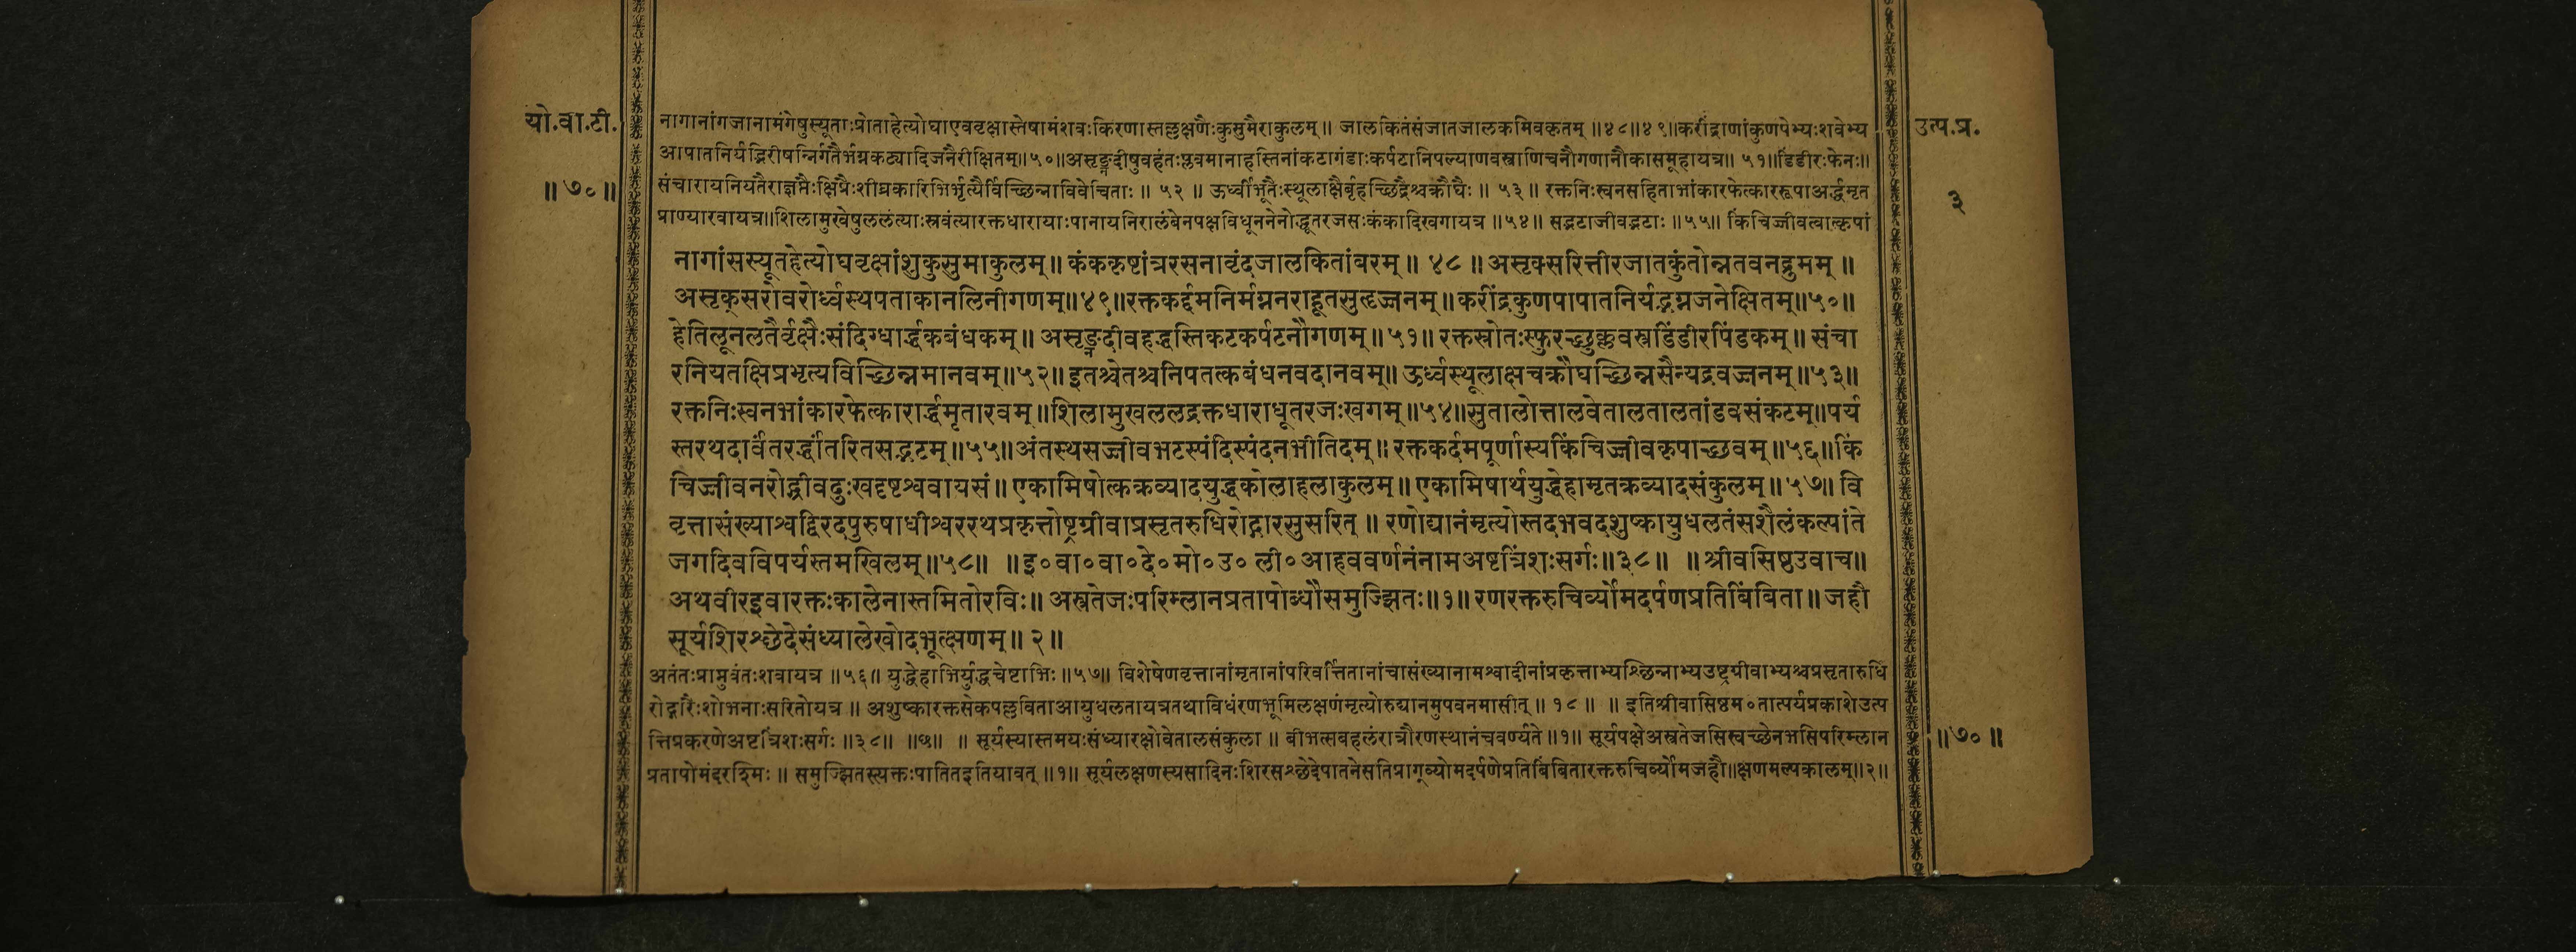 यो.वा.टी.
॥७०॥
उत्प.प्र.
३
नागानांगजानामंगेषुस्यूताःप्रोताहेत्योघाएववृक्षास्तेषामंशवःकिरणास्तल्लक्षणैःकुसुमैराकुलम्॥ जालकितंसंजातजालकमिवकृतम् ॥४८॥४९॥करींद्राणांकुणपेभ्यःशवेभ्य
आपातनिर्यद्भिरीषन्निर्गतैर्भग्नकट्यादिजनैरीक्षितम्॥५०॥असृङ्नदीषुवहंतःप्लवमानाहस्तिनांकटागंडाःकर्पटानिपल्याणवस्त्राणिचनौगणानौकासमूहायत्र॥ ५१॥डिंडीरःफेनः॥
संचारायनियतैराज्ञप्तैःक्षिप्रैःशीघ्रकारिभिर्भृत्यैर्विच्छिन्नाविवेचिताः ॥ ५२ ॥ ऊर्ध्वीभूतैःस्थूलाक्षैर्बृहच्छिद्रैश्चक्रौघैः ॥ ५३॥ रक्तनिःस्वनसहिताभांकारफेत्काररूपाअर्द्धमृत
प्राण्यारवायत्र॥शिलामुखेषुललंत्याःस्रवंत्यारक्तधारायाःपानायनिरालंबेनपक्षविधूननेनोद्धूतरजसःकंकादिखगायत्र ॥५४॥ सद्भटाजीवद्भटाः ॥५५॥ किंचिज्जीवत्वात्कृपां
नागांसस्यूतहेत्योघवृक्षांशुकुसुमाकुलम्॥ कंककृष्टांत्ररसनावृंदजालकितांबरम्॥ ४८ ॥ असृक्सरित्तीरजातकुंतोन्नतवनद्रुमम् ॥
असृक्सरोवरोर्ध्वस्थपताकानलिनीगणम्॥४९॥रक्तकर्द्दमनिर्मग्ननराहूतसुहृज्जनम्॥करींद्रकुणपापातनिर्यद्भग्नजनेक्षितम्॥५०॥
हेतिलूनलतैर्वृक्षैःसंदिग्धार्द्धकबंधकम्॥ असृङ्नदीवहद्धस्तिकटकर्पटनौगणम्॥५१॥ रक्तस्रोतःस्फुरच्छुक्लवस्त्रडिंडीरपिंडकम्॥ संचा
रनियतक्षिप्रभृत्यविच्छिन्नमानवम्॥५२॥इतश्चेतश्चनिपतत्कबंधनवदानवम्॥ ऊर्ध्वस्थूलाक्षचक्रौघच्छिन्नसैन्यद्रवज्जनम्॥५३॥
रक्तनिःस्वनभांकारफेत्कारार्द्धमृतारवम्॥शिलामुखललद्रक्तधाराधूतरजःखगम्॥५४॥सुतालोत्तालवेतालतालतांडवसंकटम्॥पर्य
स्तरथदार्वंतरर्द्धांतरितसद्भटम्॥५५॥अंतस्थसज्जीवभटस्पंदिस्पंदनभीतिदम्॥ रक्तकर्दमपूर्णास्यकिंचिज्जीवकृपाच्छवम्॥५६॥किं
चिज्जीवनरोद्ग्रीवदुःखदृष्टश्ववायसं॥ एकामिषोत्कक्रव्यादयुद्धकोलाहलाकुलम्॥ एकामिषार्थयुद्धेहामृतक्रव्यादसंकुलम्॥५७॥ वि
वृत्तासंख्याश्वद्विरदपुरुषाधीश्वररथप्रकृत्तोष्ट्रग्रीवाप्रसृतरुधिरोद्गारसुसरित् ॥ रणोद्यानंमृत्योस्तदभवदशुष्कायुधलतंसशैलंकल्पांते
जगदिवविपर्यस्तमखिलम्॥५८॥ ॥इ०वा०वा०दे०मो०उ० ली०आहववर्णनंनामअष्टत्रिंशःसर्गः॥३८॥ ॥श्रीवसिष्ठउवाच॥
अथवीरइवारक्तःकालेनास्तमितोरविः॥ अस्त्रतेजःपरिम्लानप्रतापोब्धौसमुज्झितः॥१॥रणरक्तरुचिर्व्योमदर्पणप्रतिबिंबिता॥जहौ
सूर्यशिरश्छेदेसंध्यालेखोदभूत्क्षणम्॥ २॥
अतंतःप्राप्नुवंतःशवायत्र ॥५६॥ युद्धेहाभिर्युद्धचेष्टाभिः ॥५७॥ विशेषेणवृत्तानांमृतानांपरिवर्त्तितानांचासंख्यानामश्वादीनांप्रकृत्ताभ्यश्छिन्नाभ्यउष्ट्रग्रीवाभ्यश्चप्रसृतारुधि
रोद्गारैःशोभनाःसरितोयत्र ॥ अशुष्कारक्तसेकपल्लविताआयुधलतायत्रतथाविधंरणभूमिलक्षणंमृत्योरुद्यानमुपवनमासीत्॥ १८ ॥ ॥ इतिश्रीवासिष्ठम०तात्पर्यप्रकाशेउत्प
त्तिप्रकरणेअष्टत्रिंशःसर्गः ॥३८॥ ॥छ॥ ॥ सूर्यस्यास्तमयःसंध्यारक्षोवेतालसंकुला ॥ बीभत्सबहलंरात्रौरणस्थानंचवर्ण्यते॥१॥ सूर्यपक्षेअस्त्रतेजसिस्वच्छेनभसिपरिम्लान
प्रतापोमंदरश्मिः ॥ समुज्झितस्त्यक्तःपातितइतियावत् ॥१॥ सूर्यलक्षणस्यसादिनःशिरसश्छेदेपातनेसतिप्राग्व्योमदर्पणेप्रतिबिंबितारक्तरुचिर्व्योमजहौ॥क्षणमल्पकालम्॥२॥
॥७०॥